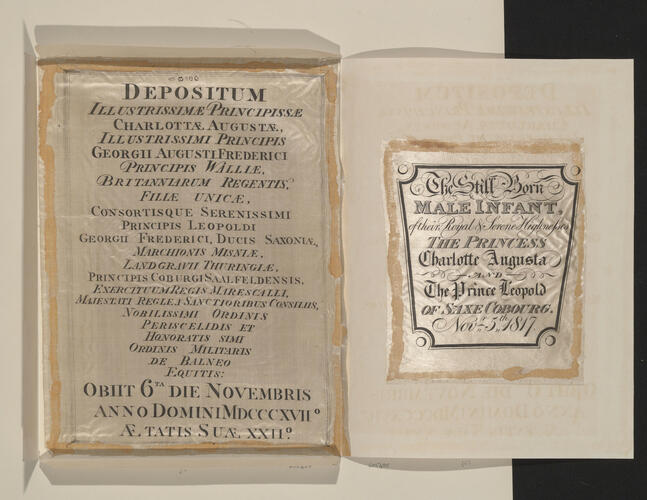 DEPOSITUM
ILLUSTRISSIMÆ PRINCIPISSÆ
CHARLOTTÆ AUGUSTÆ,
ILLUSTRISSIMI PRINCIPIS
GEORGII AUGUSTI FREDERICI
PRINCIPIS WALLIÆ,
BRITANNIARUM REGENTIS,
FILIÆ UNICÆ,
CONSORTISQUE SERENISSIMI
PRINCIPIS LEOPOLDI
GEORGII FREDERICI, DUCIS SAXONIÆ,
MARCHIONIS MISNIÆ,
LANDGRAVII THURINGIÆ,
PRINCIPIS COBURGI SAALFELDENSIS,
EXERCITUUM REGIS MARESCALLI,
MAJESTATI REGLÆ A SANCTIORIBUS CONSILIIS,
NOBILISSIMI ORDINIS
PERISCELIDIS ET
HONORATIS SIMI
ORDINIS MILITARIS
DE BALNEO
EQUITIS:
OBIIT 6TA DIE NOVEMBRIS
ANNO DOMINI MDCCCXVIIº
Æ TATIS SUÆ XXIIº.
The Still Born
MALE INFANT,
of their Royal & Serene Highnesses
THE PRINCESS
Charlotte Augusta
AND
The Prince Leopold
OF SAXE COBOURG.
Novr. 5th. 1817.